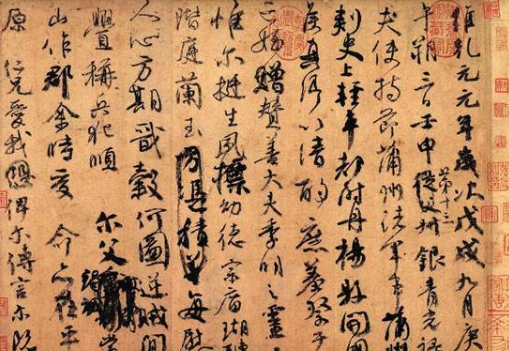 維乾元元年歲次戊戌九月庚
午朔三日壬申第十三從父叔銀青光祿
夫使持節蒲州諸軍事蒲州
刺史上輕車都尉丹楊縣開國
侯真卿以清酌庶羞祭于
亡姪贈贊善大夫季明之靈
惟爾挺生夙標幼德宗廟瑚
階庭蘭玉方憑積善每慰
人心方期戩穀何圖逆賊閒
釁稱兵犯順爾父竭誠常
山作郡余時受命亦在平
原仁兄愛我俾爾傳言爾既